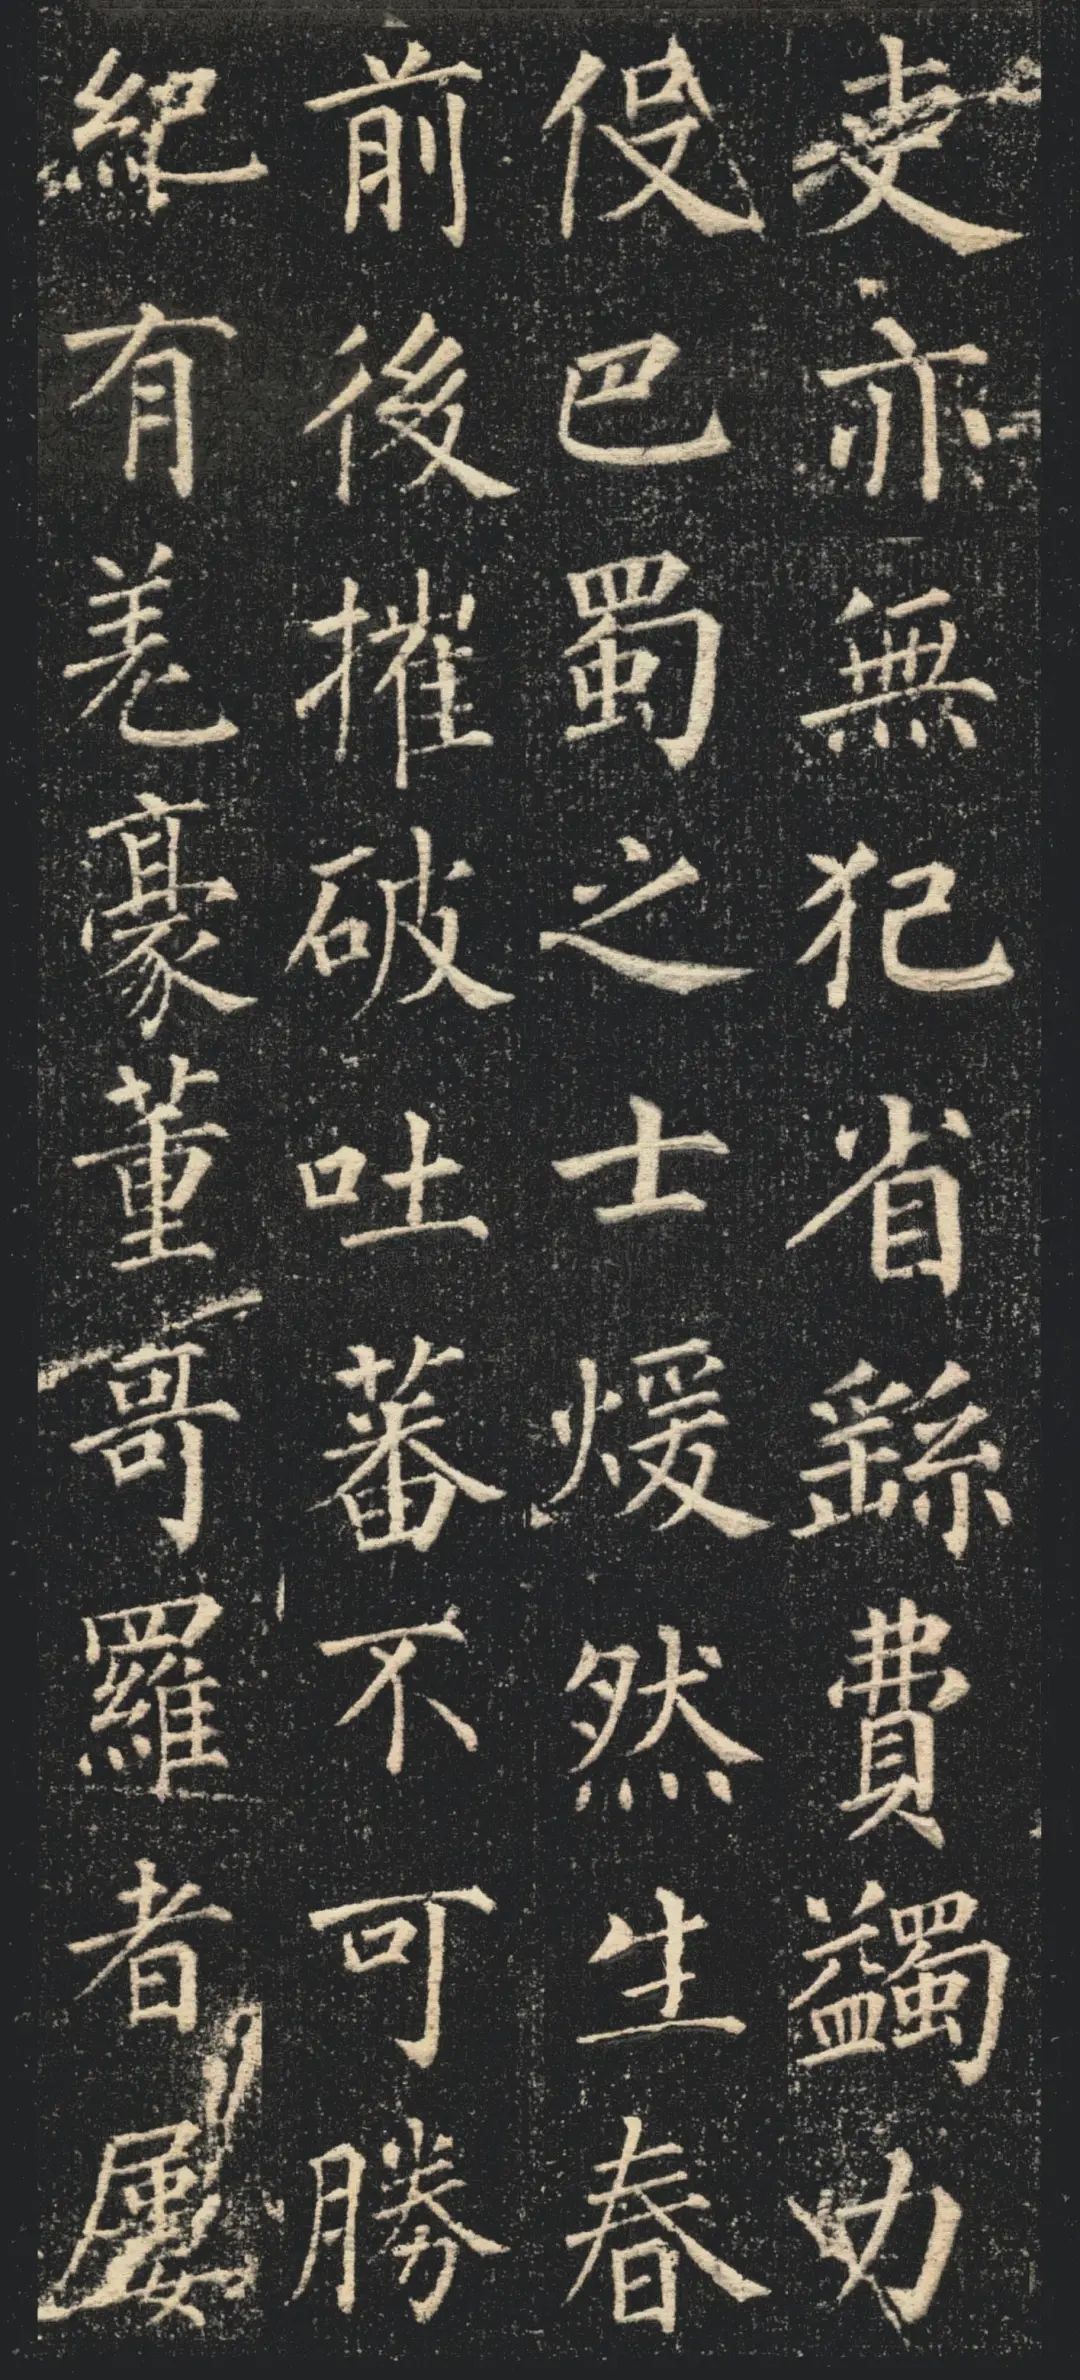 吏亦無犯省繇費蠲力
役巴蜀之士煖然生春
前後摧破吐蕃不可勝
紀有羌豪董哥羅者屢